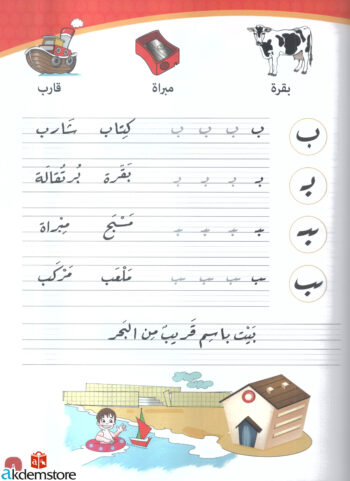 بقرة مبراة قارب
ب ب ب ب ب كِتاب شَارب
بـ بـ بـ بـ بـ بَقَرة بُرتُقالَة
ـبـ ـبـ ـبـ ـبـ ـبـ مَسْبَح مِبْراة
ـب ـب ـب ـب ـب مَلْعَب مَرْكَب
بَيْت باسِم قَريبٌ مِن البَحر
akdemstore